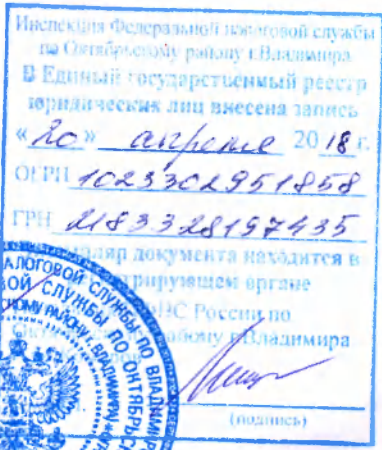 Инспекция Федеральной налоговой службы
по Октябрьскому району г.Владимира
В Единый государственный реестр
юридических лиц внесена запись
«20» апреля 2018 г.
ОГРН 1023302951858
ГРН 2183328197435
документа находится в
органе
России по
району г.Владимира
(подпись)
НАЛОГОВОЙ СЛУЖБЫ ПО ВЛАДИМИР
СЛУЖБЫ ПО ОКТЯБРЬСК
РАЙОНУ Г. ВЛАДИМИРА